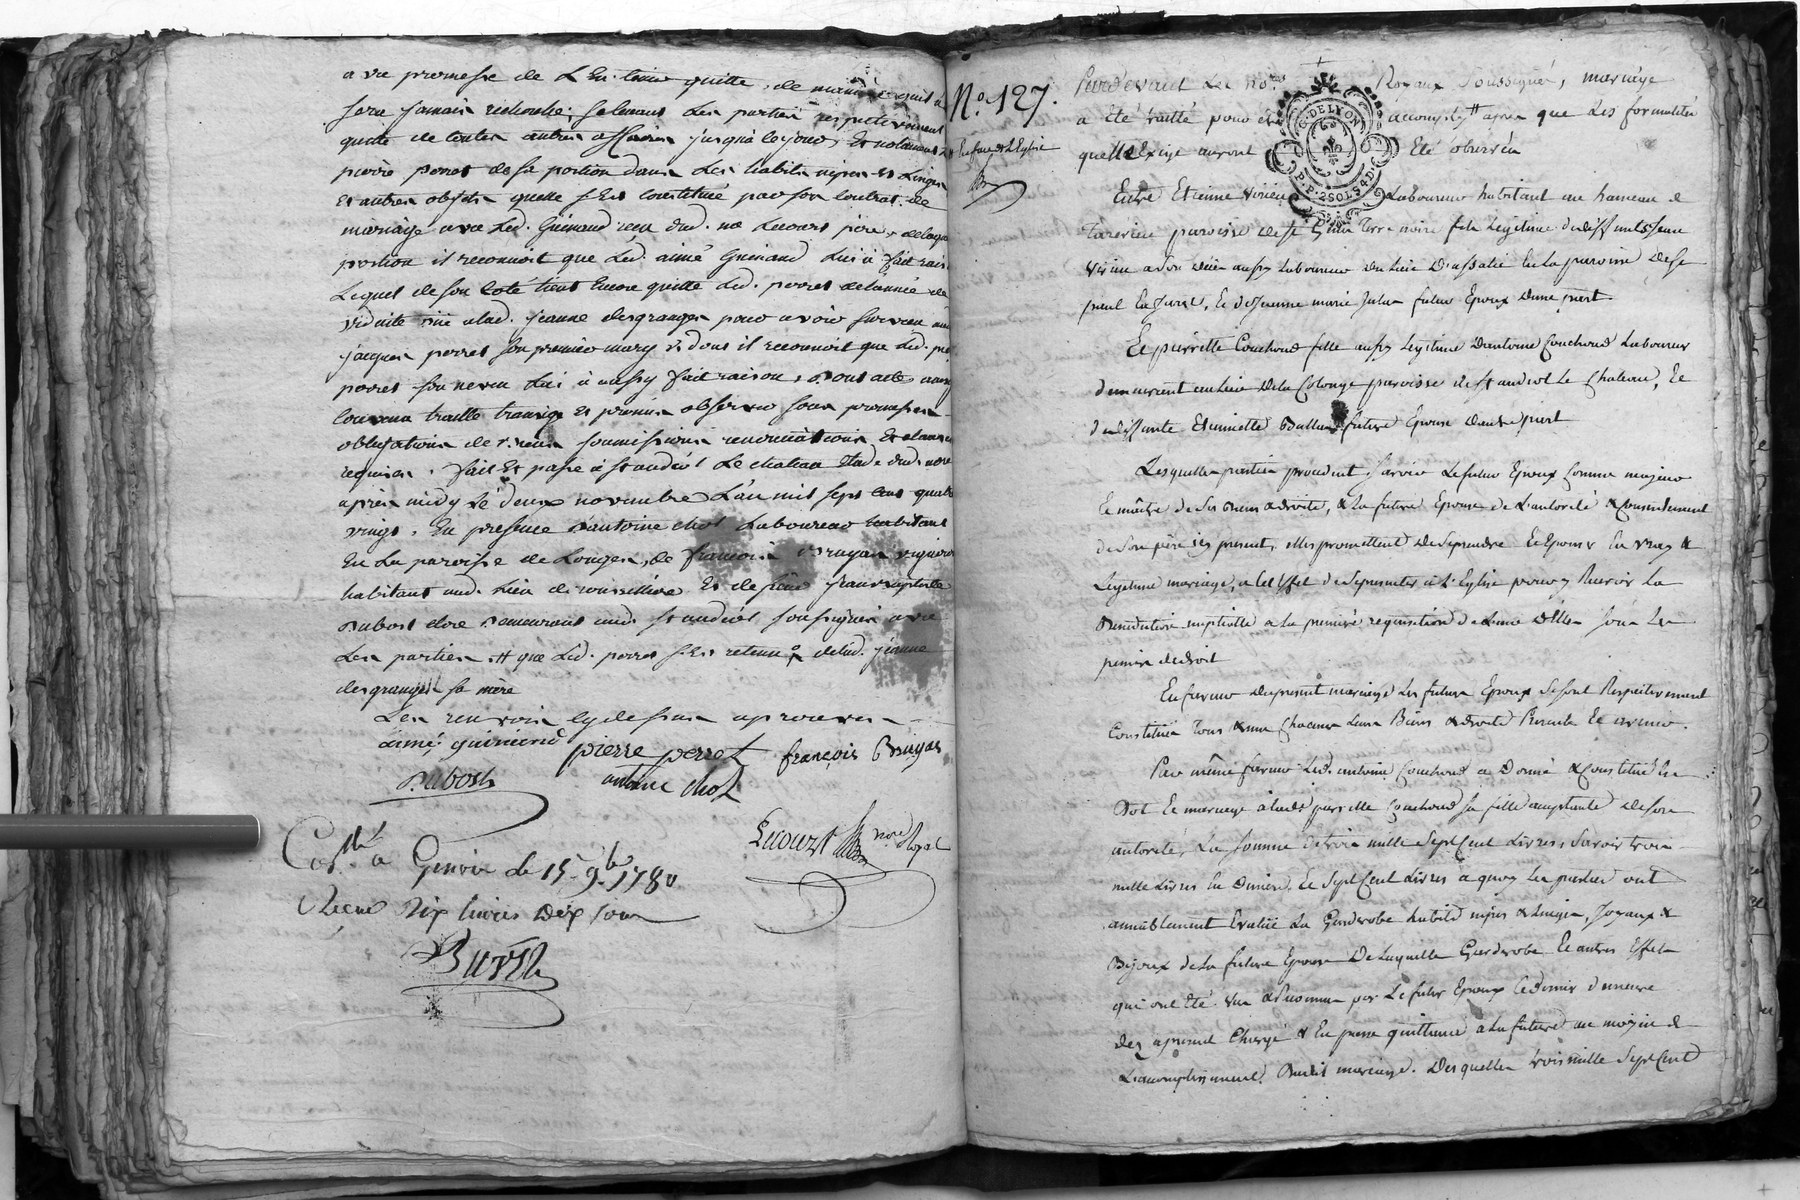 avec promesse de l'en tenir quitte, de manière quil n'en
sera jamais recherché; se tenant les parties respectivement
quitte de toutes autres affaires jusqu'à ce jour, et notament led.
pierre perret de sa portion dans les habits nipes et Linges
et autres objets quelle s'est constitué par son contrat de
mariage avec led. Guinand recu dud. ne Lecourt pere, de laquelle
portion il reconnoit que led. aimé Guinand lui à fait raison
Lequel de son coté tient encore quitte led. perret de l'année de
viduité due alad. jeanne desgranges pour avoir survecu aud.
jacques perret son premier mary, dont il reconnoit que led. pierre
perret son neveu lui à aussy fait raison, Dont acte ainsy
convenu traitté transigé et promis observer sous promesses
obligations de biens soumissions renonciations et clauses
requises. fait et passé à st andéol le chateau étude dud. nore
après midy le deux novembre L'an mil sept cent quatre
vingt. En presence d'antoine chol Laboureur habitant
en la paroisse de Longes, de françois Bruyas vigneron
habitant aud. lieu de et de sieur jean baptiste
Dubost clerc demeurant aud. st andéol soussignés avec
Les parties. # que led. perret s'est retenu de lad. jeanne
desgranges sa mère
Les renvois cy dessus aprouvés
aimé guinand pierre perret françois Bruyas
Dubost antoine chol
Lecourt nore Royal
Conlé a Givors le 15. 9bre 1780
Reçu dix livres dix sous
No. 127.
En face de L'Eglise
Pardevant Les nores Royaux Soussignés, mariage
a été traitté pour être accomply # apres que Les formalités
quelle Exige auront Eté observés
G. DE LYON
P.P. 2 SOLS 4 D.
Entre Etienne Laboureur habitant au hameau de
paroisse de st terre noire fils Legitime de deffunt
vivant aussy Laboureur du lieu en la paroisse de st
paul En Jarest, et de Jeanne marie futur Epoux d'une part.
Et pierrette Couchoud fille aussy Legitime d'antoine Couchoud Laboureur
demeurant au lieu dela Colonge paroisse de st andeol le chateau, et
de deffunte Etiennette future Epouse d'autre part
Lesquelles parties procedant sçavoir Le futur Epoux comme majeur
Et maître de ses Biens & droits, & la future Epouse de L'autorité & consentement
de son père icy present, elles promettent de se prendre Et Epouser En vray &
Legitime mariage, a cet Effet de se presenter à l'Eglise pour y Recevoir La
Benediction nuptialle a la premiere requisition de L'une d'Elles sous les
peines de droit
En faveur du present mariage Les futurs Epoux se sont Respectivement
Constitués Tous & uns Chacuns Leurs Biens & droits Presents Et avenir.
Par même faveur led. antoine Couchoud a Donné & Constitué En
Dot et mariage à lade pierrette Couchoud sa fille acceptante de son
autorité, La Somme de trois mille Sept Cent Livres, Savoir trois
mille Livres En Deniers, Et Sept Cent Livres a quoy les parties ont
amiablement Evalué La Garderobe habits nipes & Linges, Joyaux &
Bijoux de La future Epouse De Laquelle Garderobe Et autres Effets
qui ont Eté vus & Reconnus par Le futur Epoux Ce dernier demeure
des a present Chargé & En passe quittance a La future au moyen de
L'accomplissement Dudit mariage. Desquelles trois mille Sept Cent